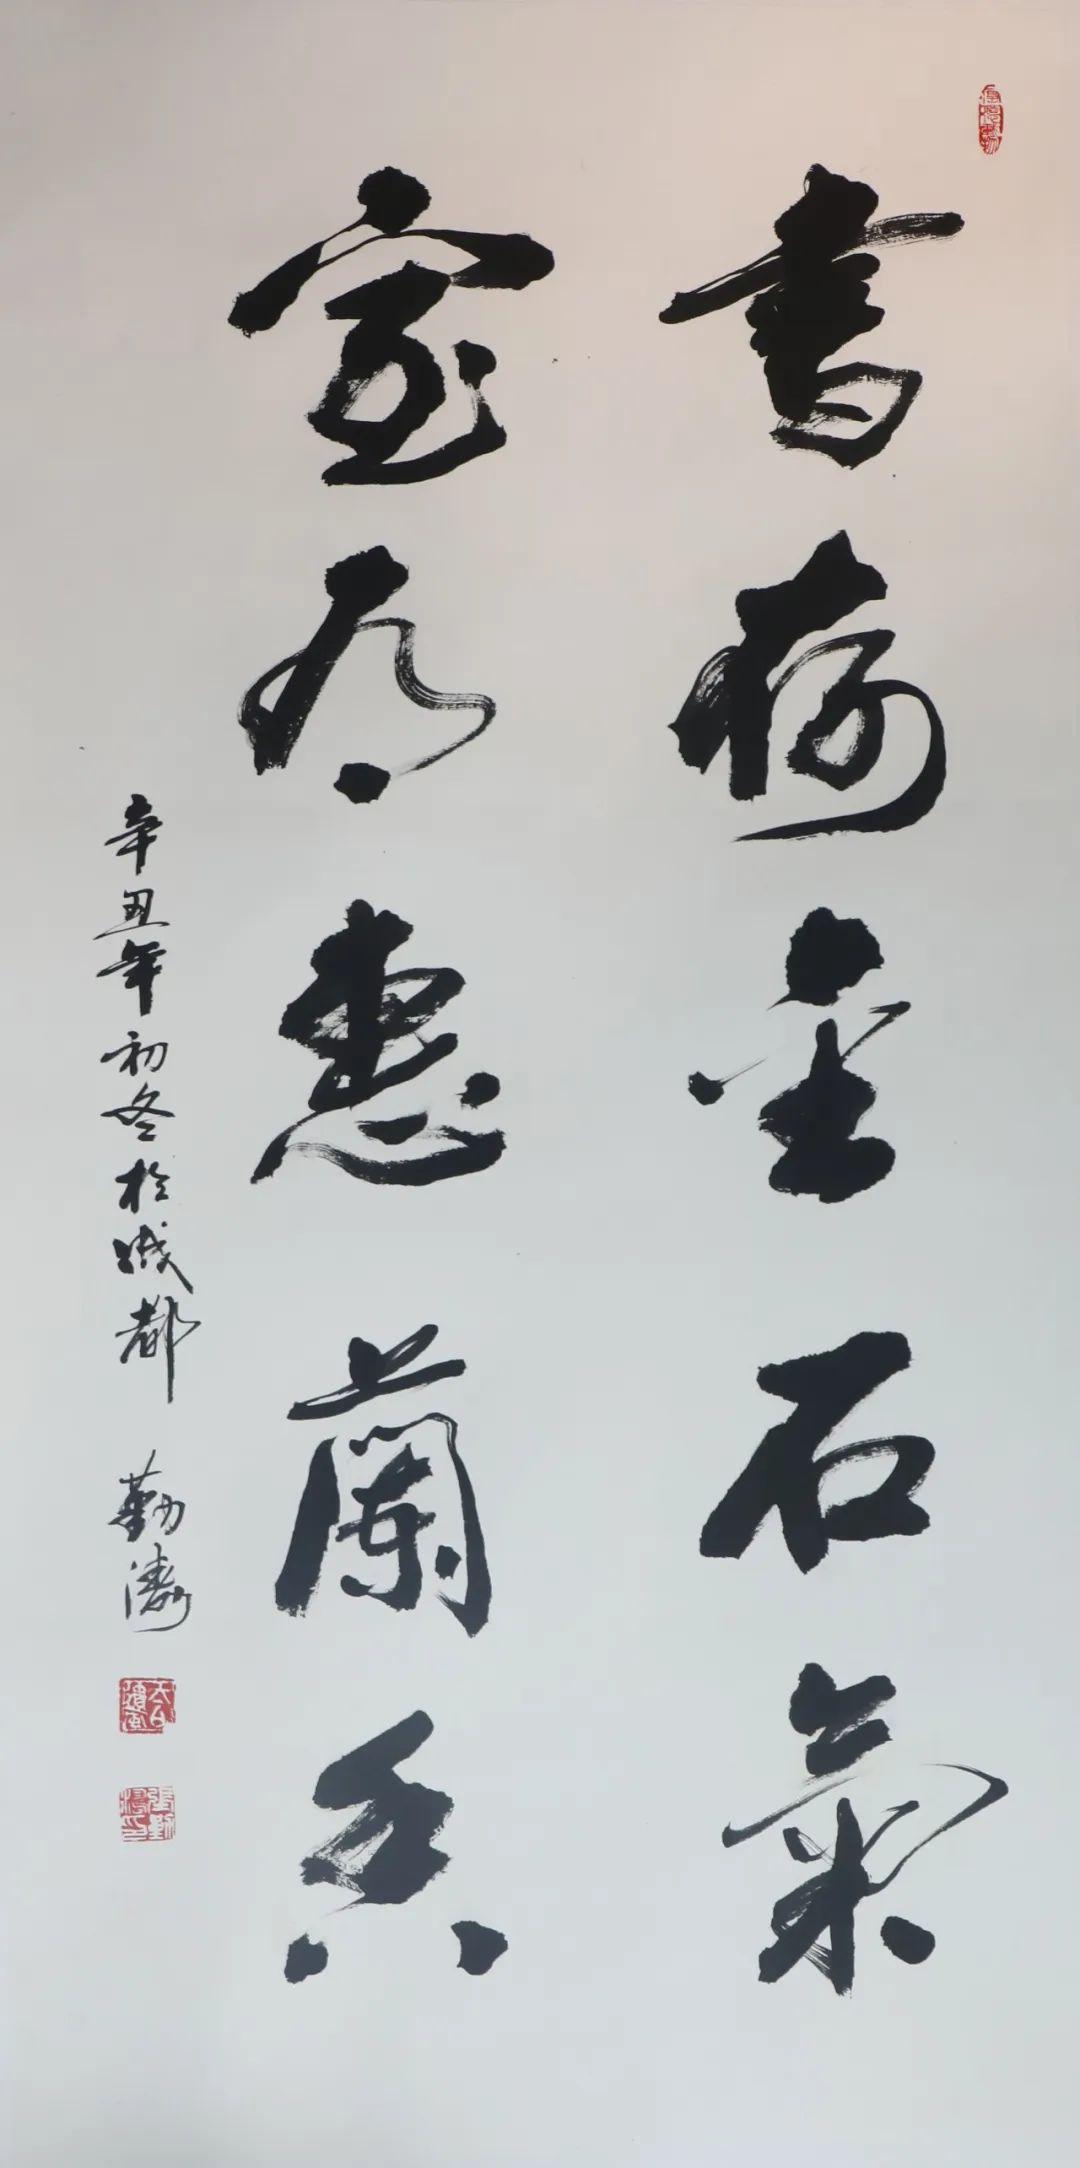 書存金石氣
室有惠蘭香
辛丑年初冬於成都 勤濤